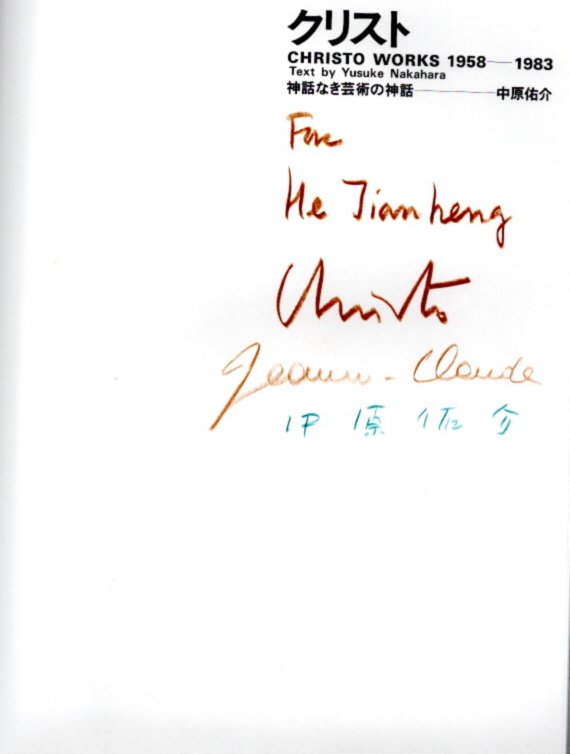 クリスト
CHRISTO WORKS 1958—1983
Text by Yusuke Nakahara
神話なき芸術の神話————中原佑介
For
He Jianheng
Christo
Jeanne-Claude
中原佑介